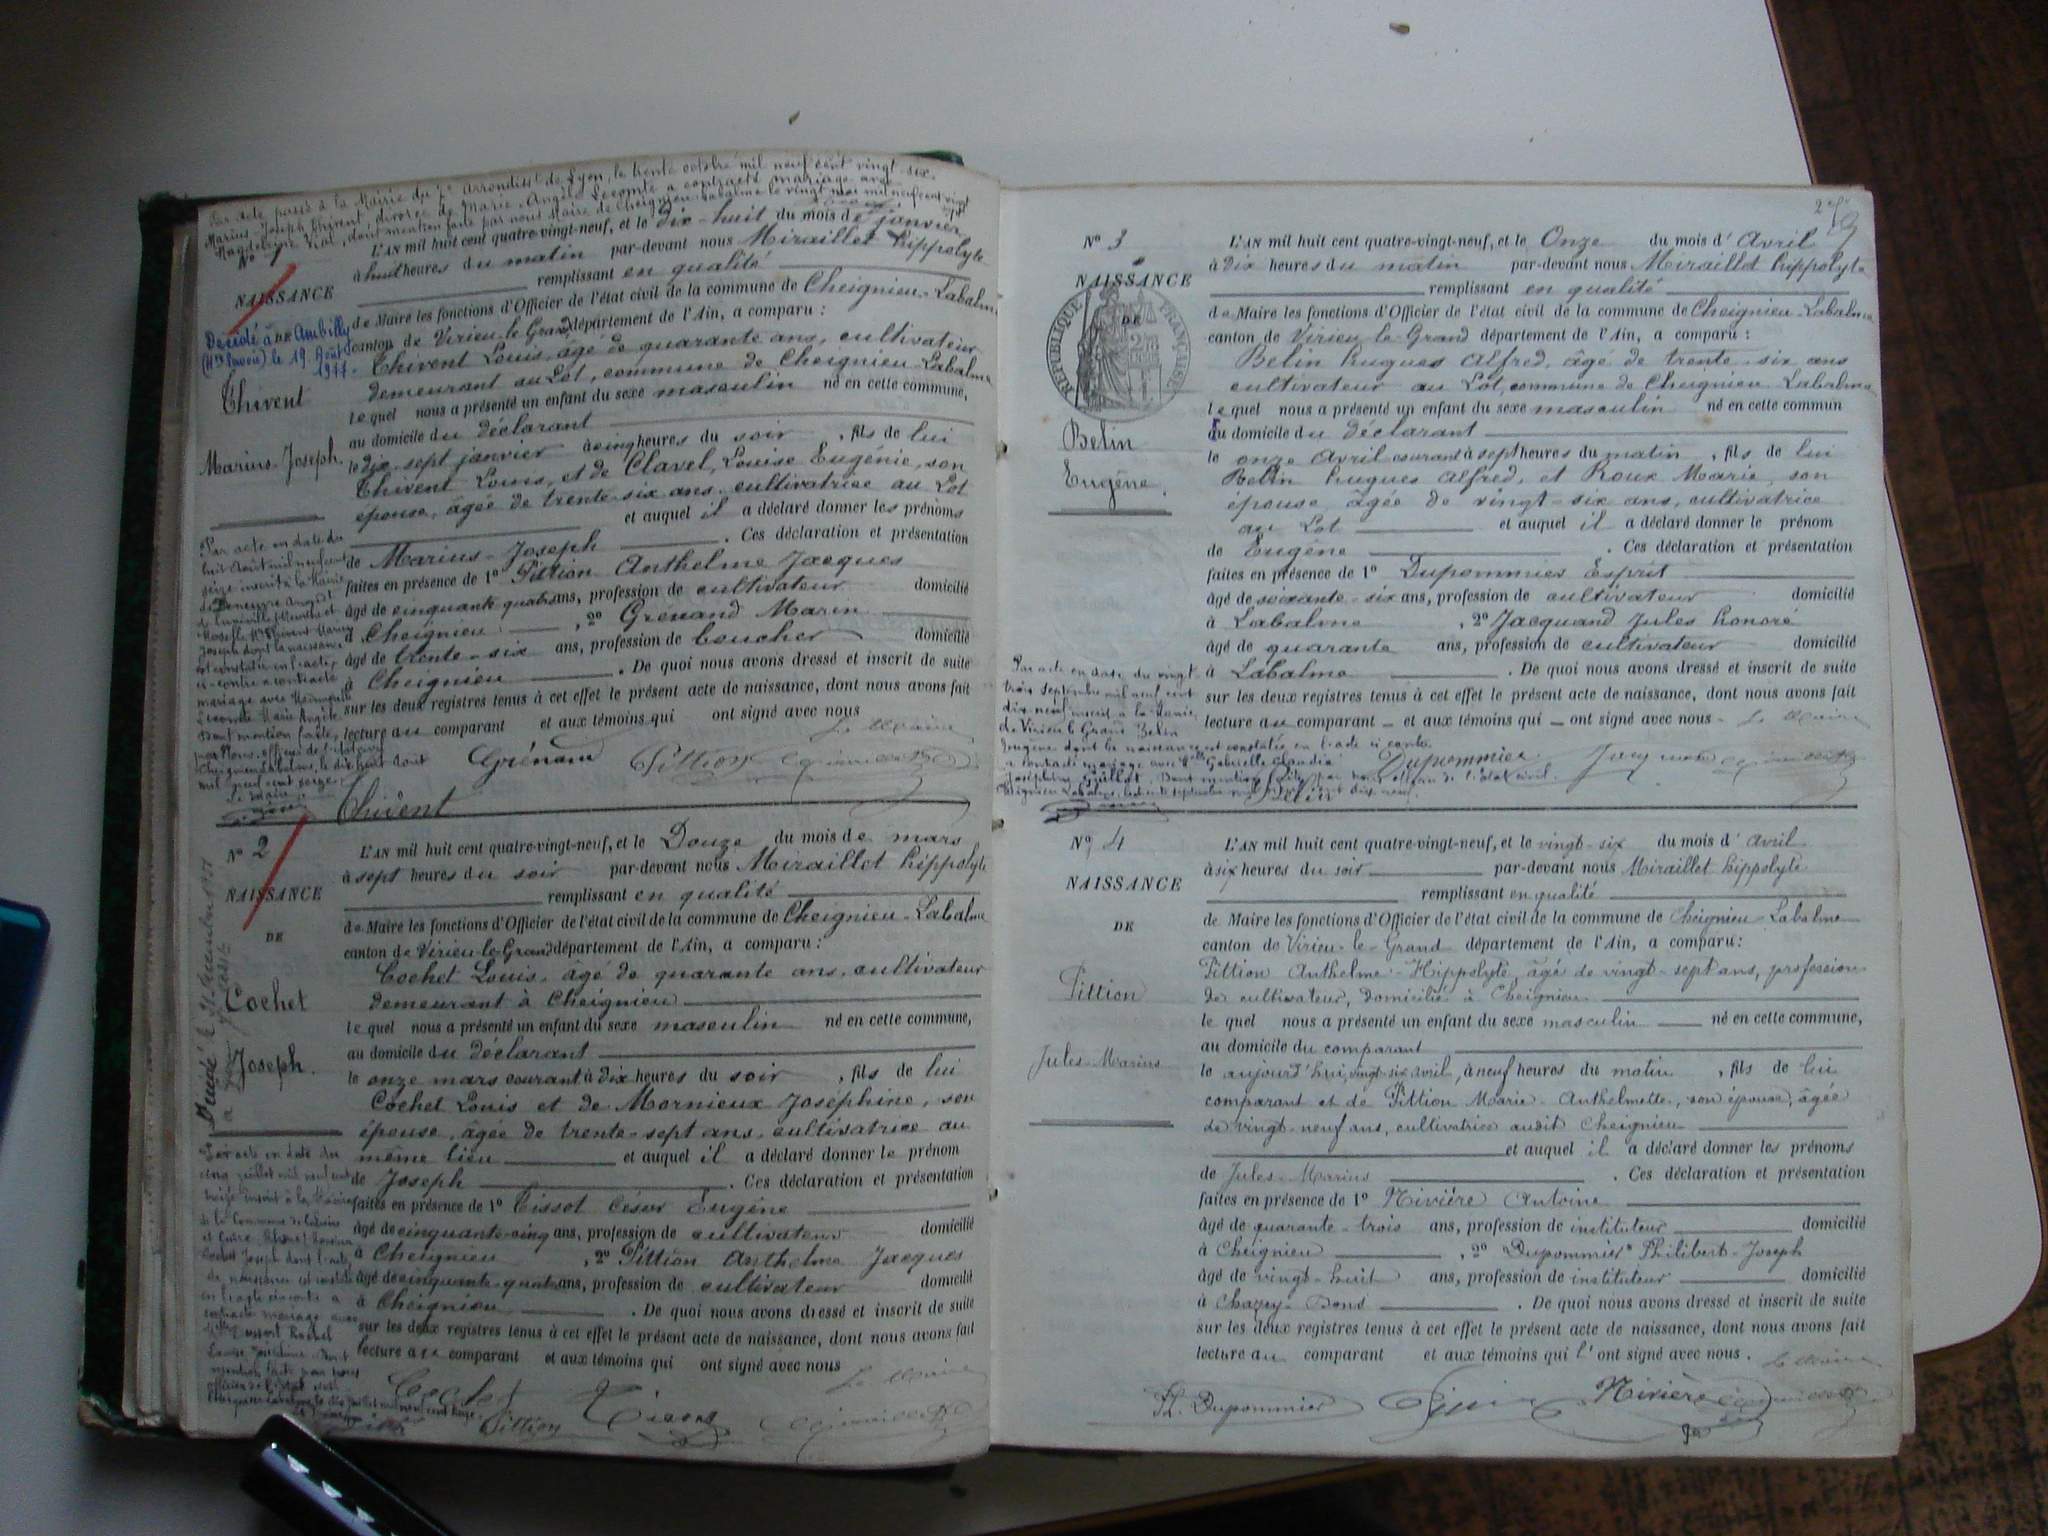 Par acte passé à la Mairie du 7e arrondisst de Lyon, le trente octobre mil neuf cent vingt-six.
Marius-Joseph Thivent, divorcé de Marie-Angèle Lecomte a contracté mariage avec
Magdeleine Vial, dont mention faite par nous Maire de Cheignieu-Labalme le vingt mil neuf cent vingt
No 1
NAISSANCE
Décédé à Ambilly
(Hte Savoie) le 19 Août
1977.
Thivent
Marius-Joseph.
L'AN mil huit cent quatre-vingt-neuf, et le dix-huit du mois de janvier
à huit heures du matin par-devant nous Miraillet hippolyte
remplissant en qualité
de Maire les fonctions d'Officier de l'état civil de la commune de Cheignieu-Labalme
canton de Virieu-le-Grand département de l'Ain, a comparu :
Thivent Louis, âgé de quarante ans, cultivateur
demeurant au Lot, commune de Cheignieu-Labalme
lequel nous a présenté un enfant du sexe masculin né en cette commune,
au domicile du déclarant
le dix-sept janvier à cinq heures du soir, fils de lui
Thivent Louis, et de Clavel, Louise Eugénie, son
épouse, âgée de trente-six ans, cultivatrice au Lot
et auquel il a déclaré donner les prénoms
de Marius-Joseph. Ces déclaration et présentation
faites en présence de 1o Pittion Anthelme Jacques
âgé de cinquante quatre ans, profession de cultivateur domicilié
à Cheignieu, 2o Grénand Marin
âgé de trente-six ans, profession de boucher domicilié
à Cheignieu. De quoi nous avons dressé et inscrit de suite
sur les deux registres tenus à cet effet le présent acte de naissance, dont nous avons fait
lecture au comparant et aux témoins qui ont signé avec nous
Le Maire
Grénand Pittion
Thivent
Par acte en date du
huit Août mil neuf cent
seize inscrit à la Mairie
Thivent Marius
Joseph dont la naissance
est constatée en l'acte
ci-contre a contracté
mariage avec
Lecomte Marie Angèle
Dont mention faite,
par Nous, officier de l'état civil
Cheignieu-Labalme, le dix huit Août
mil neuf cent seize
Le Maire
No 2
NAISSANCE
DE
Cochet
Joseph.
Décédé le
L'AN mil huit cent quatre-vingt-neuf, et le Douze du mois de mars
à sept heures du soir par-devant nous Miraillet hippolyte
remplissant en qualité
de Maire les fonctions d'Officier de l'état civil de la commune de Cheignieu-Labalme
canton de Virieu-le-Grand département de l'Ain, a comparu :
Cochet Louis, âgé de quarante ans, cultivateur
demeurant à Cheignieu
lequel nous a présenté un enfant du sexe masculin né en cette commune,
au domicile du déclarant
le onze mars courant à dix heures du soir, fils de lui
Cochet Louis et de Mornieux Joséphine, son
épouse, âgée de trente-sept ans, cultivatrice au
même lieu et auquel il a déclaré donner le prénom
de Joseph. Ces déclaration et présentation
faites en présence de 1o Tissot César Eugène
âgé de cinquante-cinq ans, profession de cultivateur domicilié
à Cheignieu, 2o Pittion Anthelme Jacques
âgé de cinquante-quatre ans, profession de cultivateur domicilié
à Cheignieu. De quoi nous avons dressé et inscrit de suite
sur les deux registres tenus à cet effet le présent acte de naissance, dont nous avons fait
lecture au comparant et aux témoins qui ont signé avec nous
Le Maire
Cochet
Pittion
Par acte en date du
cinq juillet mil neuf cent
treize inscrit à la Mairie
Cochet Joseph dont l'acte
de naissance est inscrit
contracté mariage avec
mention faite par nous
officier de l'état civil
No 3
NAISSANCE
DE
RÉPUBLIQUE FRANÇAISE
Belin
Eugène.
L'AN mil huit cent quatre-vingt-neuf, et le Onze du mois d'Avril
à dix heures du matin par-devant nous Miraillet hippolyte
remplissant en qualité
de Maire les fonctions d'Officier de l'état civil de la commune de Cheignieu-Labalme
canton de Virieu-le-Grand département de l'Ain, a comparu :
Belin hugues Alfred, âgé de trente-six ans
cultivateur au Lot, commune de Cheignieu-Labalme
lequel nous a présenté un enfant du sexe masculin né en cette commun
au domicile du déclarant
le onze Avril courant à sept heures du matin, fils de lui
Belin hugues Alfred, et Roux Marie, son
épouse âgée de vingt-six ans, cultivatrice
au Lot et auquel il a déclaré donner le prénom
de Eugène. Ces déclaration et présentation
faites en présence de 1o Dupommier Esprit
âgé de soixante-six ans, profession de cultivateur domicilié
à Labalme, 2o Jacquand Jules honoré
âgé de quarante ans, profession de cultivateur domicilié
à Labalme. De quoi nous avons dressé et inscrit de suite
sur les deux registres tenus à cet effet le présent acte de naissance, dont nous avons fait
lecture au comparant et aux témoins qui ont signé avec nous
Le Maire
Dupommier Jacquand
Belin
Par acte en date du vingt
trois septembre mil neuf cent
dix-neuf inscrit à la Mairie
de Virieu le Grand Belin
Eugène dont la naissance est constatée en l'acte ci contre
a contracté mariage avec Gabrielle Claudia
Joséphine Guillot. Dont mention faite par nous officier de l'état civil.
No 4
NAISSANCE
DE
Pittion
Jules-Marius
L'AN mil huit cent quatre-vingt-neuf, et le vingt-six du mois d'avril
à six heures du soir par-devant nous Miraillet hippolyte
remplissant en qualité
de Maire les fonctions d'Officier de l'état civil de la commune de Cheignieu-Labalme
canton de Virieu-le-Grand département de l'Ain, a comparu :
Pittion Anthelme-Hippolyte, âgé de vingt-sept ans, profession
de cultivateur, domicilié à Cheignieu
lequel nous a présenté un enfant du sexe masculin né en cette commune,
au domicile du comparant
le aujourd'hui, vingt-six avril, à neuf heures du matin, fils de lui
comparant et de Pittion Marie-Anthelmette, son épouse, âgée
de vingt-neuf ans, cultivatrice audit Cheignieu
et auquel il a déclaré donner les prénoms
de Jules-Marius. Ces déclaration et présentation
faites en présence de 1o Nivière Antoine
âgé de quarante-trois ans, profession de instituteur domicilié
à Cheignieu, 2o Dupommier Philibert-Joseph
âgé de vingt-huit ans, profession de instituteur domicilié
à Chazey-Bons. De quoi nous avons dressé et inscrit de suite
sur les deux registres tenus à cet effet le présent acte de naissance, dont nous avons fait
lecture au comparant et aux témoins qui l'ont signé avec nous.
Le Maire
Ph. Dupommier Nivière